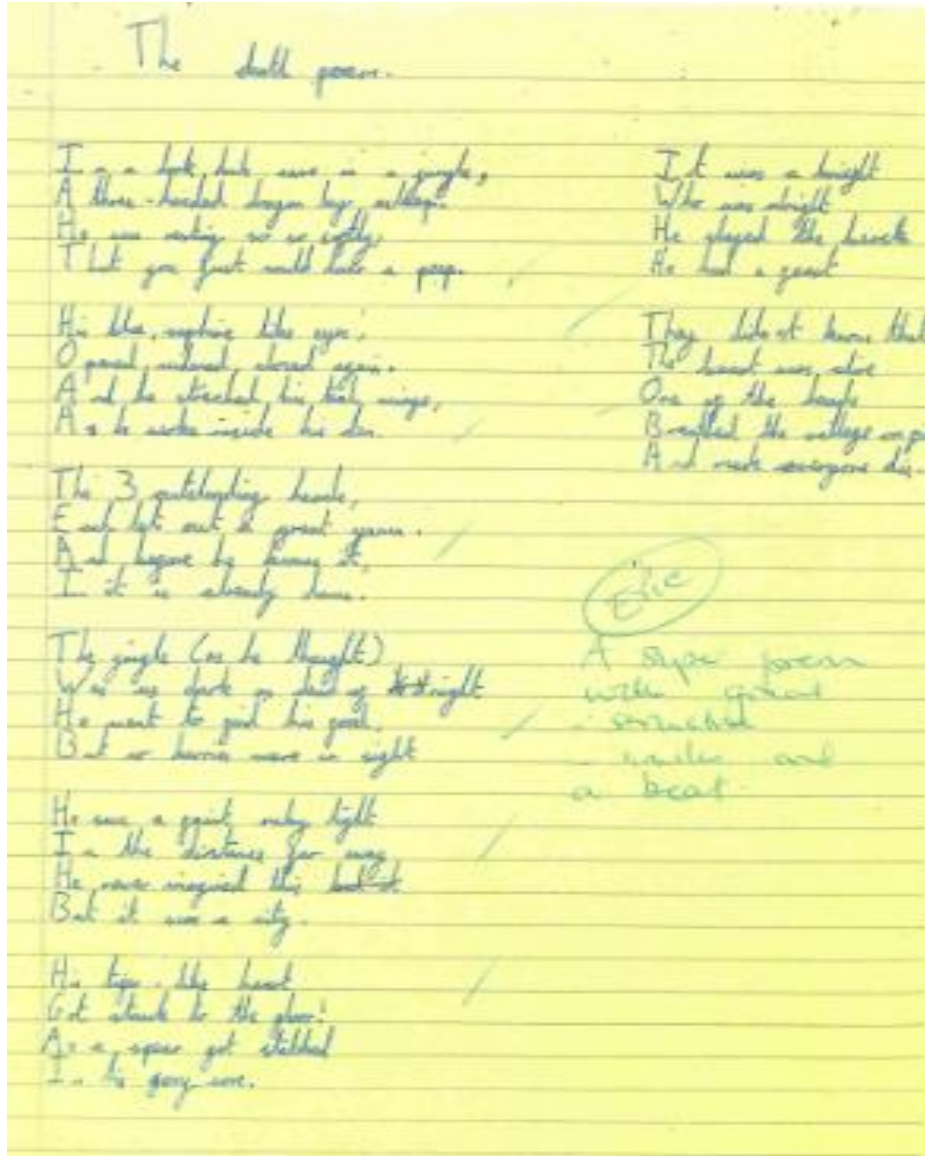 The death poem.
In a dark, dark cave in a jungle,
A three-headed dragon lay asleep.
He was resting so so softly,
That you just could have a peep.
His blue, saphire like eyes,
Opened, closed again.
And he streched his wings,
As he woke inside his den.
The 3 heads,
Each let out a great yawn.
And before he knows it,
It is already dawn.
The jungle (as he thought)
Was as dark as dead of night
He went to find his food,
But no were in sight
He saw a faint, ruby light
In the distance far away
He never imagined this
But it was a city.
His like heart
Got stuck to the floor!
As a spear got
In his gory core.
It was a knight
Who was alright
He played the
He had a feast
They didn't know that
The beast was alive
One of the heads
the village
And made everyone die.
Eric
A super poem
with good
- structure
and
a beat.